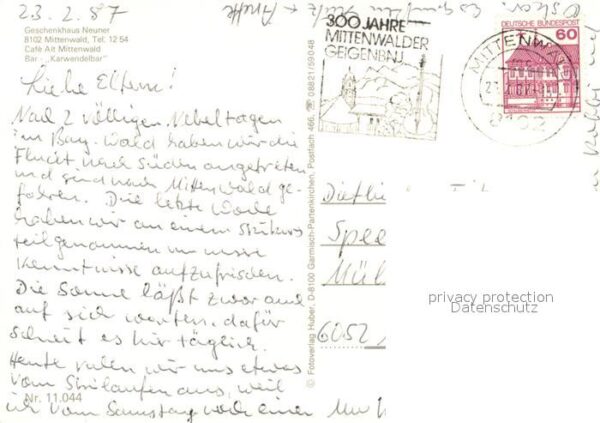 23.2.87
Geschenkhaus Neuner
8102 Mittenwald, Tel. 12 54
Café Alt Mittenwald
Bar - „Karwendelbar"
Liebe Eltern!
Nach 2 völligen Nebeltagen
im Bay. Wald haben wir die
Flucht nach Süden angetreten
und sind nach Mittenwald ge-
fahren. Die letzte Woche
haben wir an einem Skikurs
teilgenommen um unsere
Kenntnisse aufzufrischen.
Die Sonne läßt zwar auch
auf sich warten, dafür
schneit es hier täglich.
Heute ruhen wir uns etwas
vom Skilaufen aus, weil
ich vom Samstag noch einen
Nr. 11.044
© Fotoverlag Huber, D-8100 Garmisch-Partenkirchen, Postfach 466, ☎ 08821/59048
300 JAHRE
MITTENWALDER
GEIGENB
MITTENWA
8102
DEUTSCHE BUNDESPOST
60
Müh
6052
privacy protection
Datenschutz